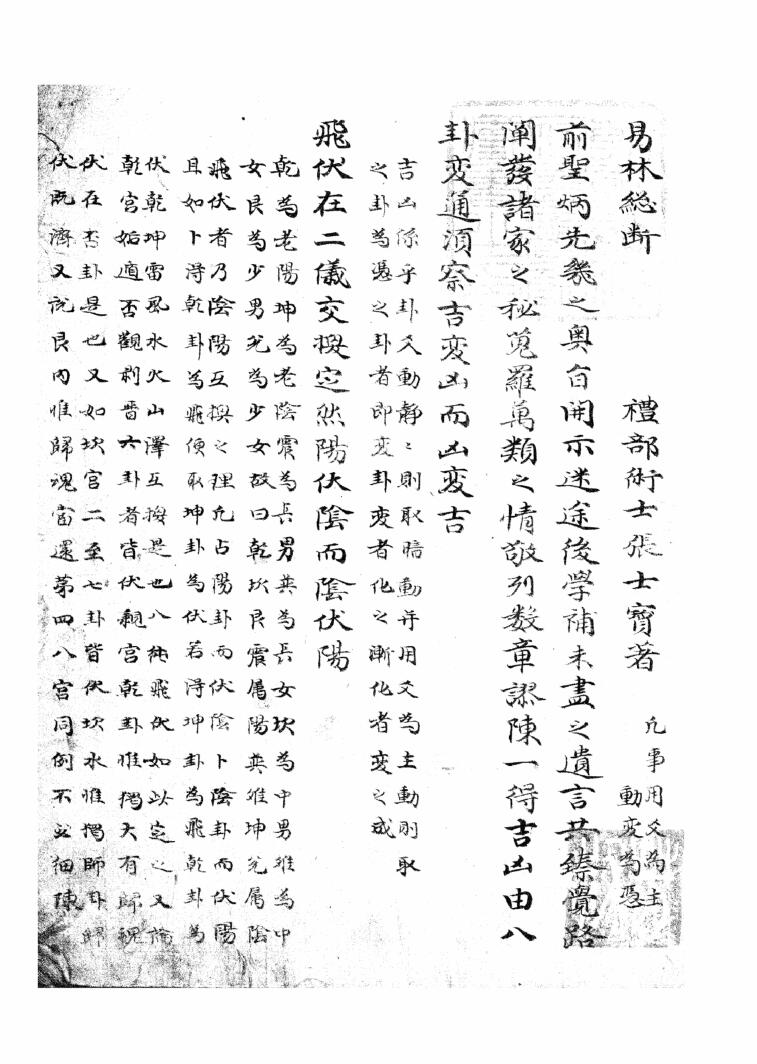 易林総断 禮部術士張士寳著 凡事用爻為主
動変為憑
前聖炳先幾之奥旨開示迷途後學補未盡之遺言共臻覺路
闡發諸家之秘蒐羅萬類之情敬列数章謬陳一得吉凶由八
卦变通須察吉变凶而凶变吉
吉凶係乎卦爻動静〻則取暗動并用爻為主動則取
之卦為憑之卦者即变卦变者化之漸化者变之成
飛伏在二儀交换定然陽伏陰而陰伏陽
乾為老陽坤為老陰震為長男巽為長女坎為中男離為中
女艮為少男兌為少女故曰乾坎艮震属陽巽離坤兌属陰
飛伏者乃陰陽互换之理凢占陽卦而伏陰卜陰卦而伏陽
且如卜淂乾卦為飛便取坤卦為伏若淂坤卦為飛乾卦為
伏乾坤雷風水火山澤互换是也八純飛伏如此定之又論
乾宫姤遁否觀剥晋六卦者皆伏宫乾卦惟獨大有歸魂
伏在否卦是也又如坎宫二至七卦皆伏坎水惟獨師卦歸
伏既濟又说艮内惟歸魂當還第四八宫同例不必细陳